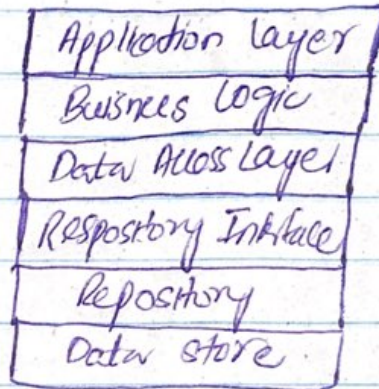 Application Layer
Buisnees Logic
Data Access Layer
Respository Interface
Repository
Data store